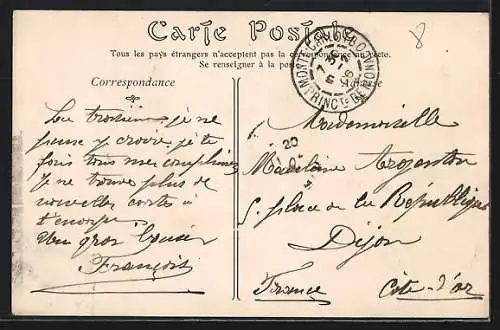 Carte Postale
Tous les pays étrangers n'acceptent pas la correspondance au recto.
Se renseigner à la poste
Correspondance
Adresse
8
MONTE-CARLO
PRINCTÉ DE MONACO
20
je ne
peux y croire, je te
fais tous mes compliments
Je ne trouve plus de
nouvelles cartes à
t'envoyer
Un gros baiser
François
Mademoiselle
Madeleine
5. place de la République
Dijon
France Côte-d'or